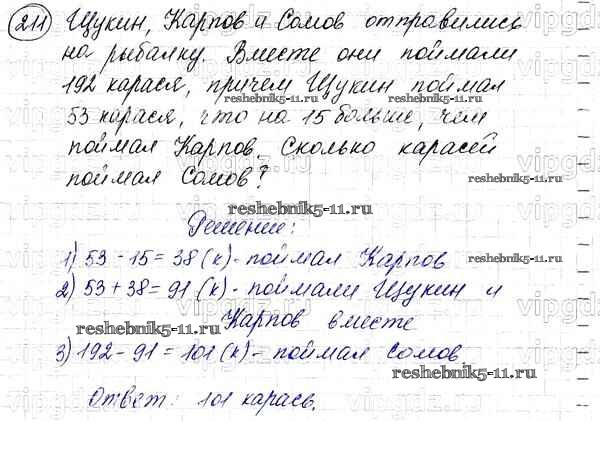 211 Щукин, Карпов и Сомов отправились
на рыбалку. Вместе они поймали
192 карася, причем Щукин поймал
reshebnik5-11.ru
53 карася, что на 15 больше, чем
поймал Карпов. Сколько карасей
поймал Сомов?
reshebnik5-11.ru
Решение:
1) 53 - 15 = 38 (к) - поймал Карпов
reshebnik5-11.ru
2) 53 + 38 = 91 (к) - поймали Щукин и
Карпов вместе
reshebnik5-11.ru
3) 192 - 91 = 101 (к) - поймал Сомов
reshebnik5-11.ru
Ответ: 101 карась.